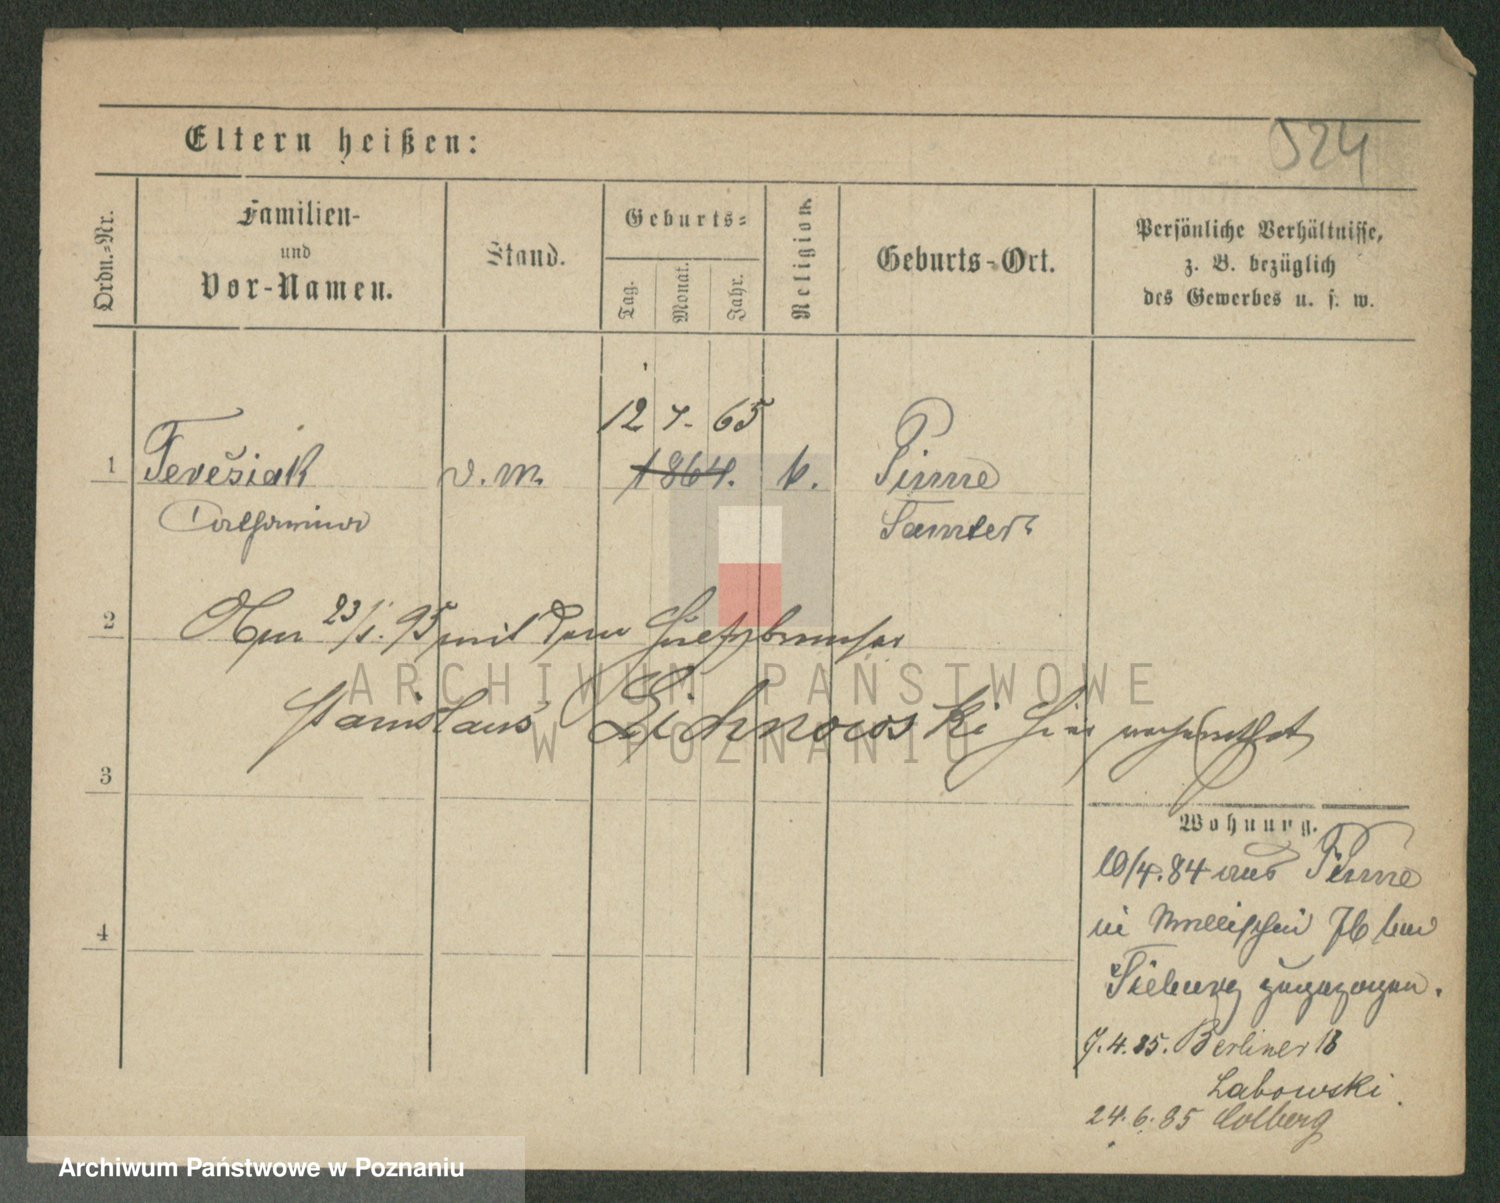 Eltern heißen:
524
Ordn.-Nr.
Familien-
und
Vor-Namen.
Stand.
Geburts-
Tag.
Monat.
Jahr.
Religion.
Geburts-Ort.
Persönliche Verhältnisse,
z. B. bezüglich
des Gewerbes u. s. w.
12 7. 65
1 Terešiak d. M. 1864. k. Pinne
Catharina Samter
2 Am 23/1. 95 mit dem
Stanislaus Lichnowski hier verheirathet
3
Wohnung.
10/4. 84 aus Pinne
in Wallischei 76 bei
zugezogen.
4
7. 4. 85. Berliner 18
Labowski.
24. 6. 85 Colberg
ARCHIWUM PAŃSTWOWE
W POZNANIU
Archiwum Państwowe w Poznaniu